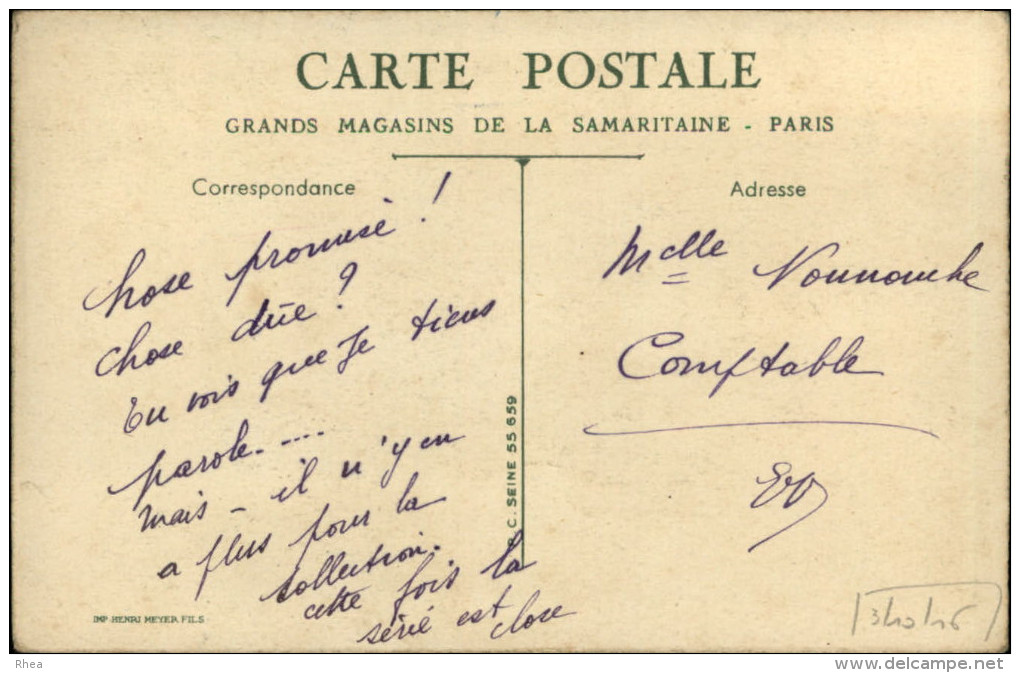 CARTE POSTALE
GRANDS MAGASINS DE LA SAMARITAINE - PARIS
Correspondance
chose promise !
chose dûe ?
tu vois que je tiens
parole.....
mais - il n'y en
a plus pour la
collection.
cette fois la
série est
close
Adresse
Melle Nounouche
Comptable
EV
C. SEINE 55 659
IMP. HENRI MEYER FILS
Rhea
delcampe.net